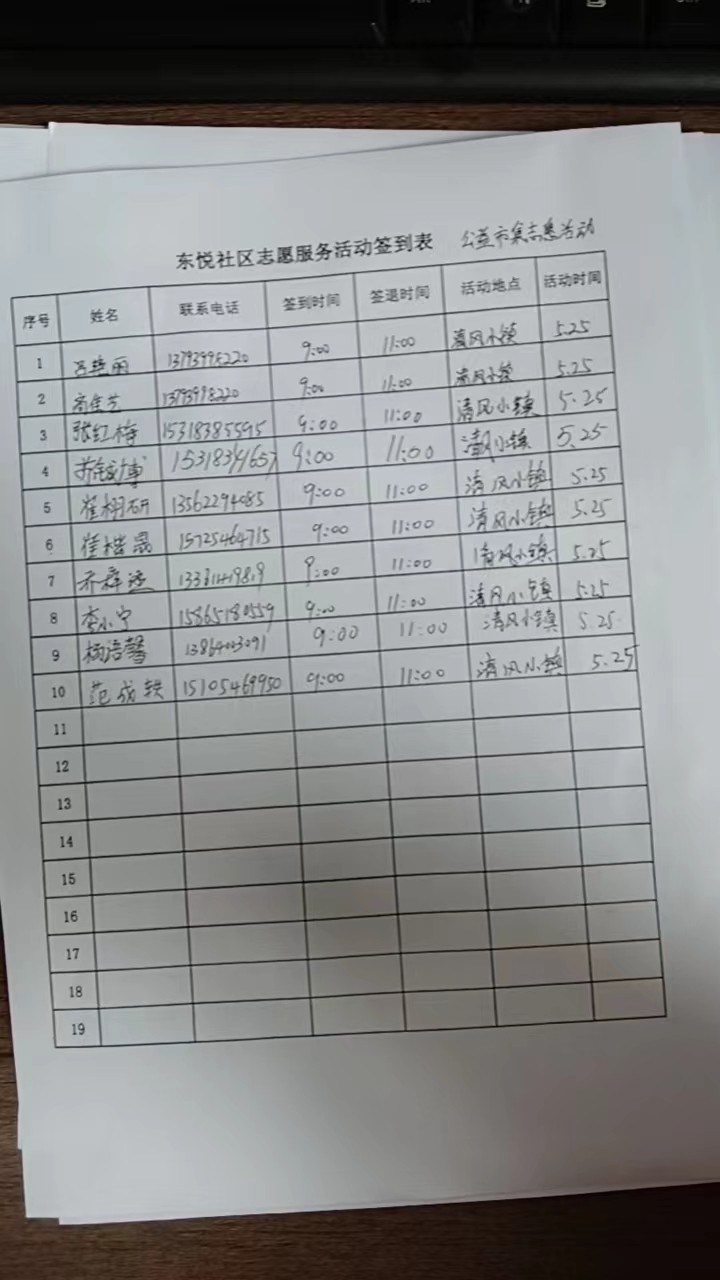 东悦社区志愿服务活动签到表 公益市集志愿活动
序号 姓名 联系电话 签到时间 签退时间 活动地点 活动时间
1 艳丽 9:00 11:00 清风小镇 5.25
2 高佳艺 9:00 11:00 清风小镇 5.25
3 张红梅 15318385595 9:00 11:00 清风小镇 5.25
4 9:00 11:00 清风小镇 5.25
5 崔栩研 13562294085 9:00 11:00 清风小镇 5.25
6 崔楷晟 15725464715 9:00 11:00 清风小镇 5.25
7 9:00 11:00 清风小镇 5.25
8 李小宁 15865180559 9:00 11:00 清风小镇 5.25
9 杨语馨 9:00 11:00 清风小镇 5.25
10 范成轶 15105469950 9:00 11:00 清风小镇 5.25
11
12
13
14
15
16
17
18
19